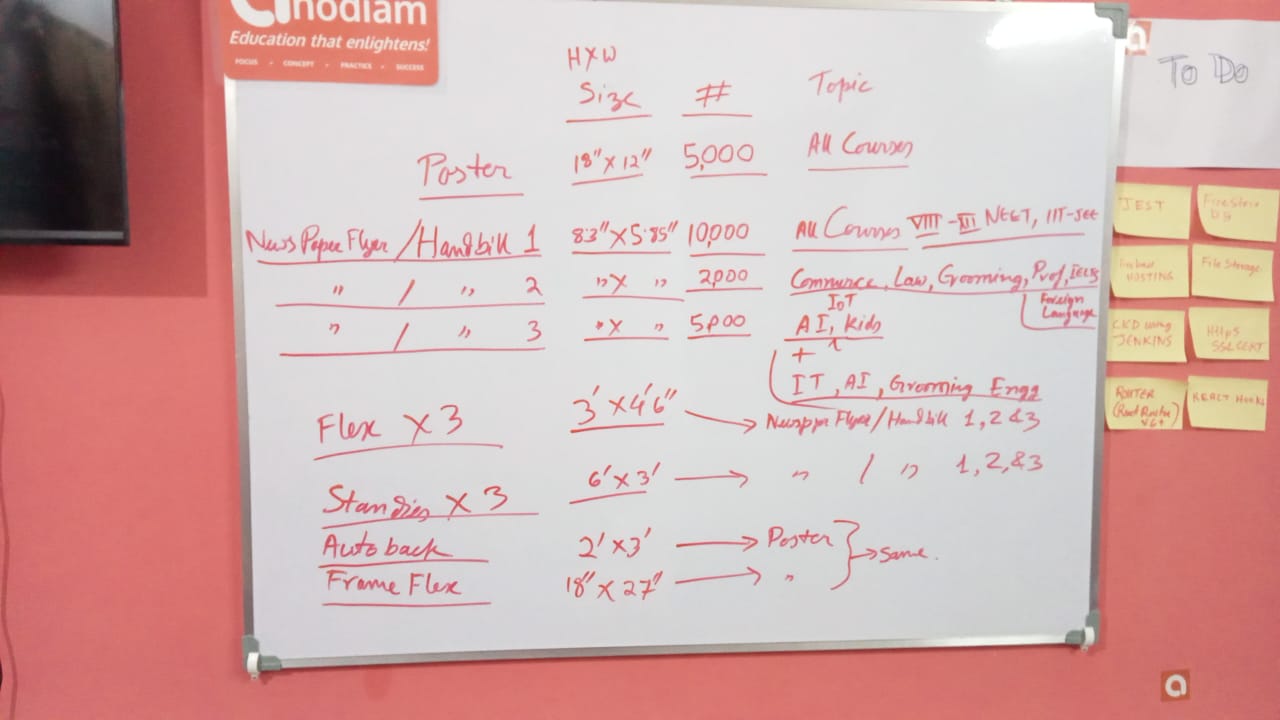 nodiam
Education that enlightens!
FOCUS • CONCEPT • PRACTICE • SUCCESS
HXW
Size # Topic
Poster 18"X12" 5,000 All Courses
News Paper Flyer/Handbill 1 8.3"X5.85" 10,000 All Courses VIII-XII NEET, IIT-JEE
" / " 2 "X " 2,000 Commerce, Law, Grooming, Prof, IELTS
Foreign
Language
IoT
" / " 3 "X " 5,000 AI, Kids
+
IT, AI, Grooming Engg
Flex X3 3'X4'6" → Newspper Flyer/Handbill 1,2&3
Standies X3 6'X3' → " / " 1,2,&3
Autoback 2'X3' → Poster } → Same.
Frame Flex 18"X27" → "
To Do
JEST
HOSTING
File Storage
CICD using
JENKINS
HTTPS
SSL CERT
ROUTER
REACT HOOKS
a